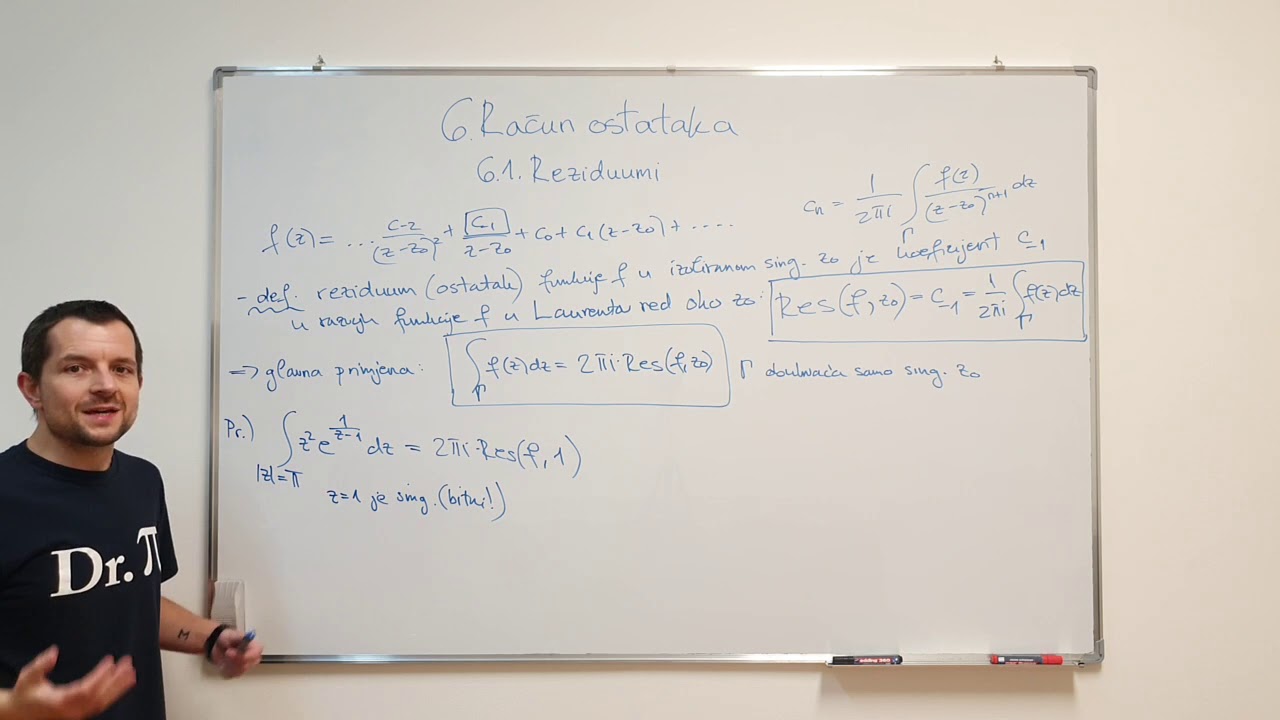 6. Račun ostataka
6.1. Reziduumi
f(z) = ... c-2/(z-z₀)² + c-1/z-z₀ + c₀ + c₁(z-z₀) + ....
cₙ = 1/2πi ∫Γ f(z)/(z-z₀)ⁿ⁺¹ dz
- def. reziduum (ostatak) funkcije f u izoliranom sing. z₀ je koeficijent c-1
u razvoju funkcije f u Laurentov red oko z₀: Res(f, z₀) = c-1 = 1/2πi ∫Γ f(z)dz
=> glavna primjena: ∫Γ f(z)dz = 2πi·Res(f, z₀) Γ obuhvaća samo sing. z₀
Pr.) ∫|z|=π z²e^(1/z-1) dz = 2πi·Res(f, 1)
z=1 je sing. (bitni!)
Dr. π
M
edding 360